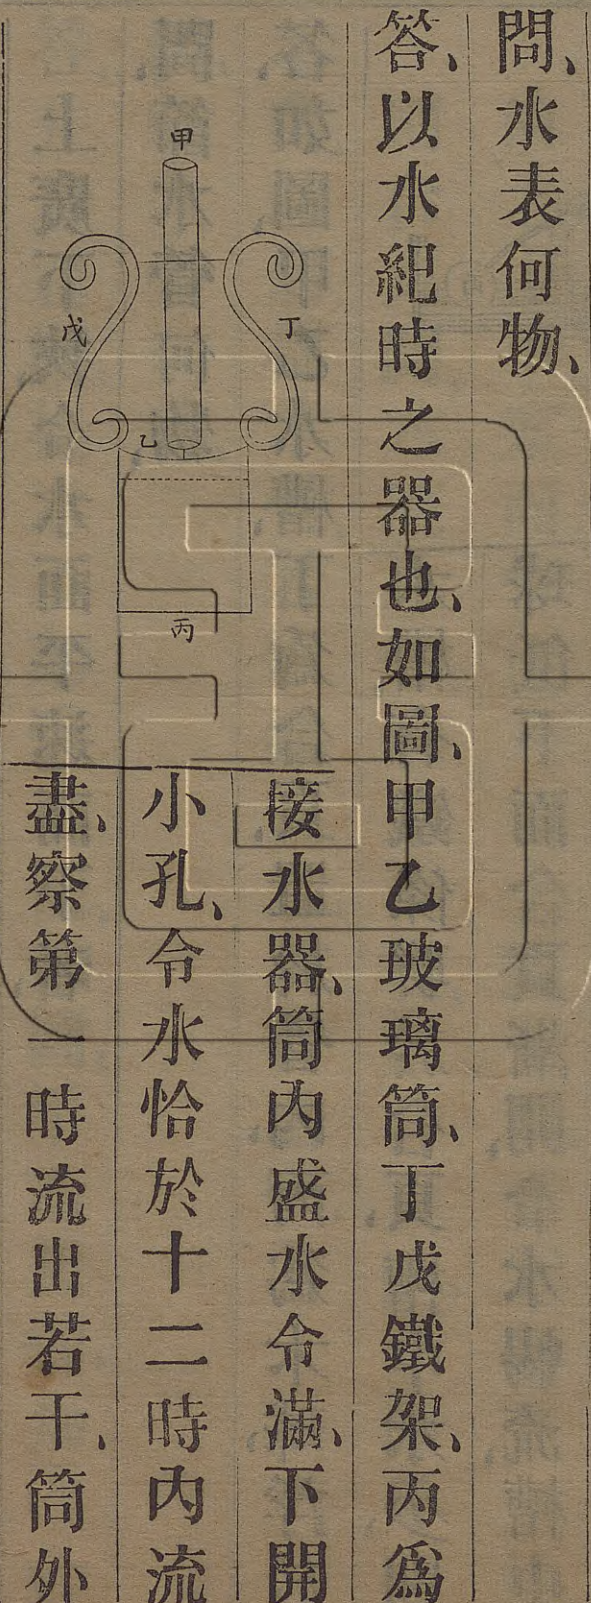 問、水表何物、
答、以水紀時之器也、如圖、甲乙玻璃筒、丁戊鐵架、丙爲
接水器、筒內盛水令滿、下開
小孔、令水恰於十二時內流
盡、察第一時流出若干、筒外
甲
丁
戊
乙
丙